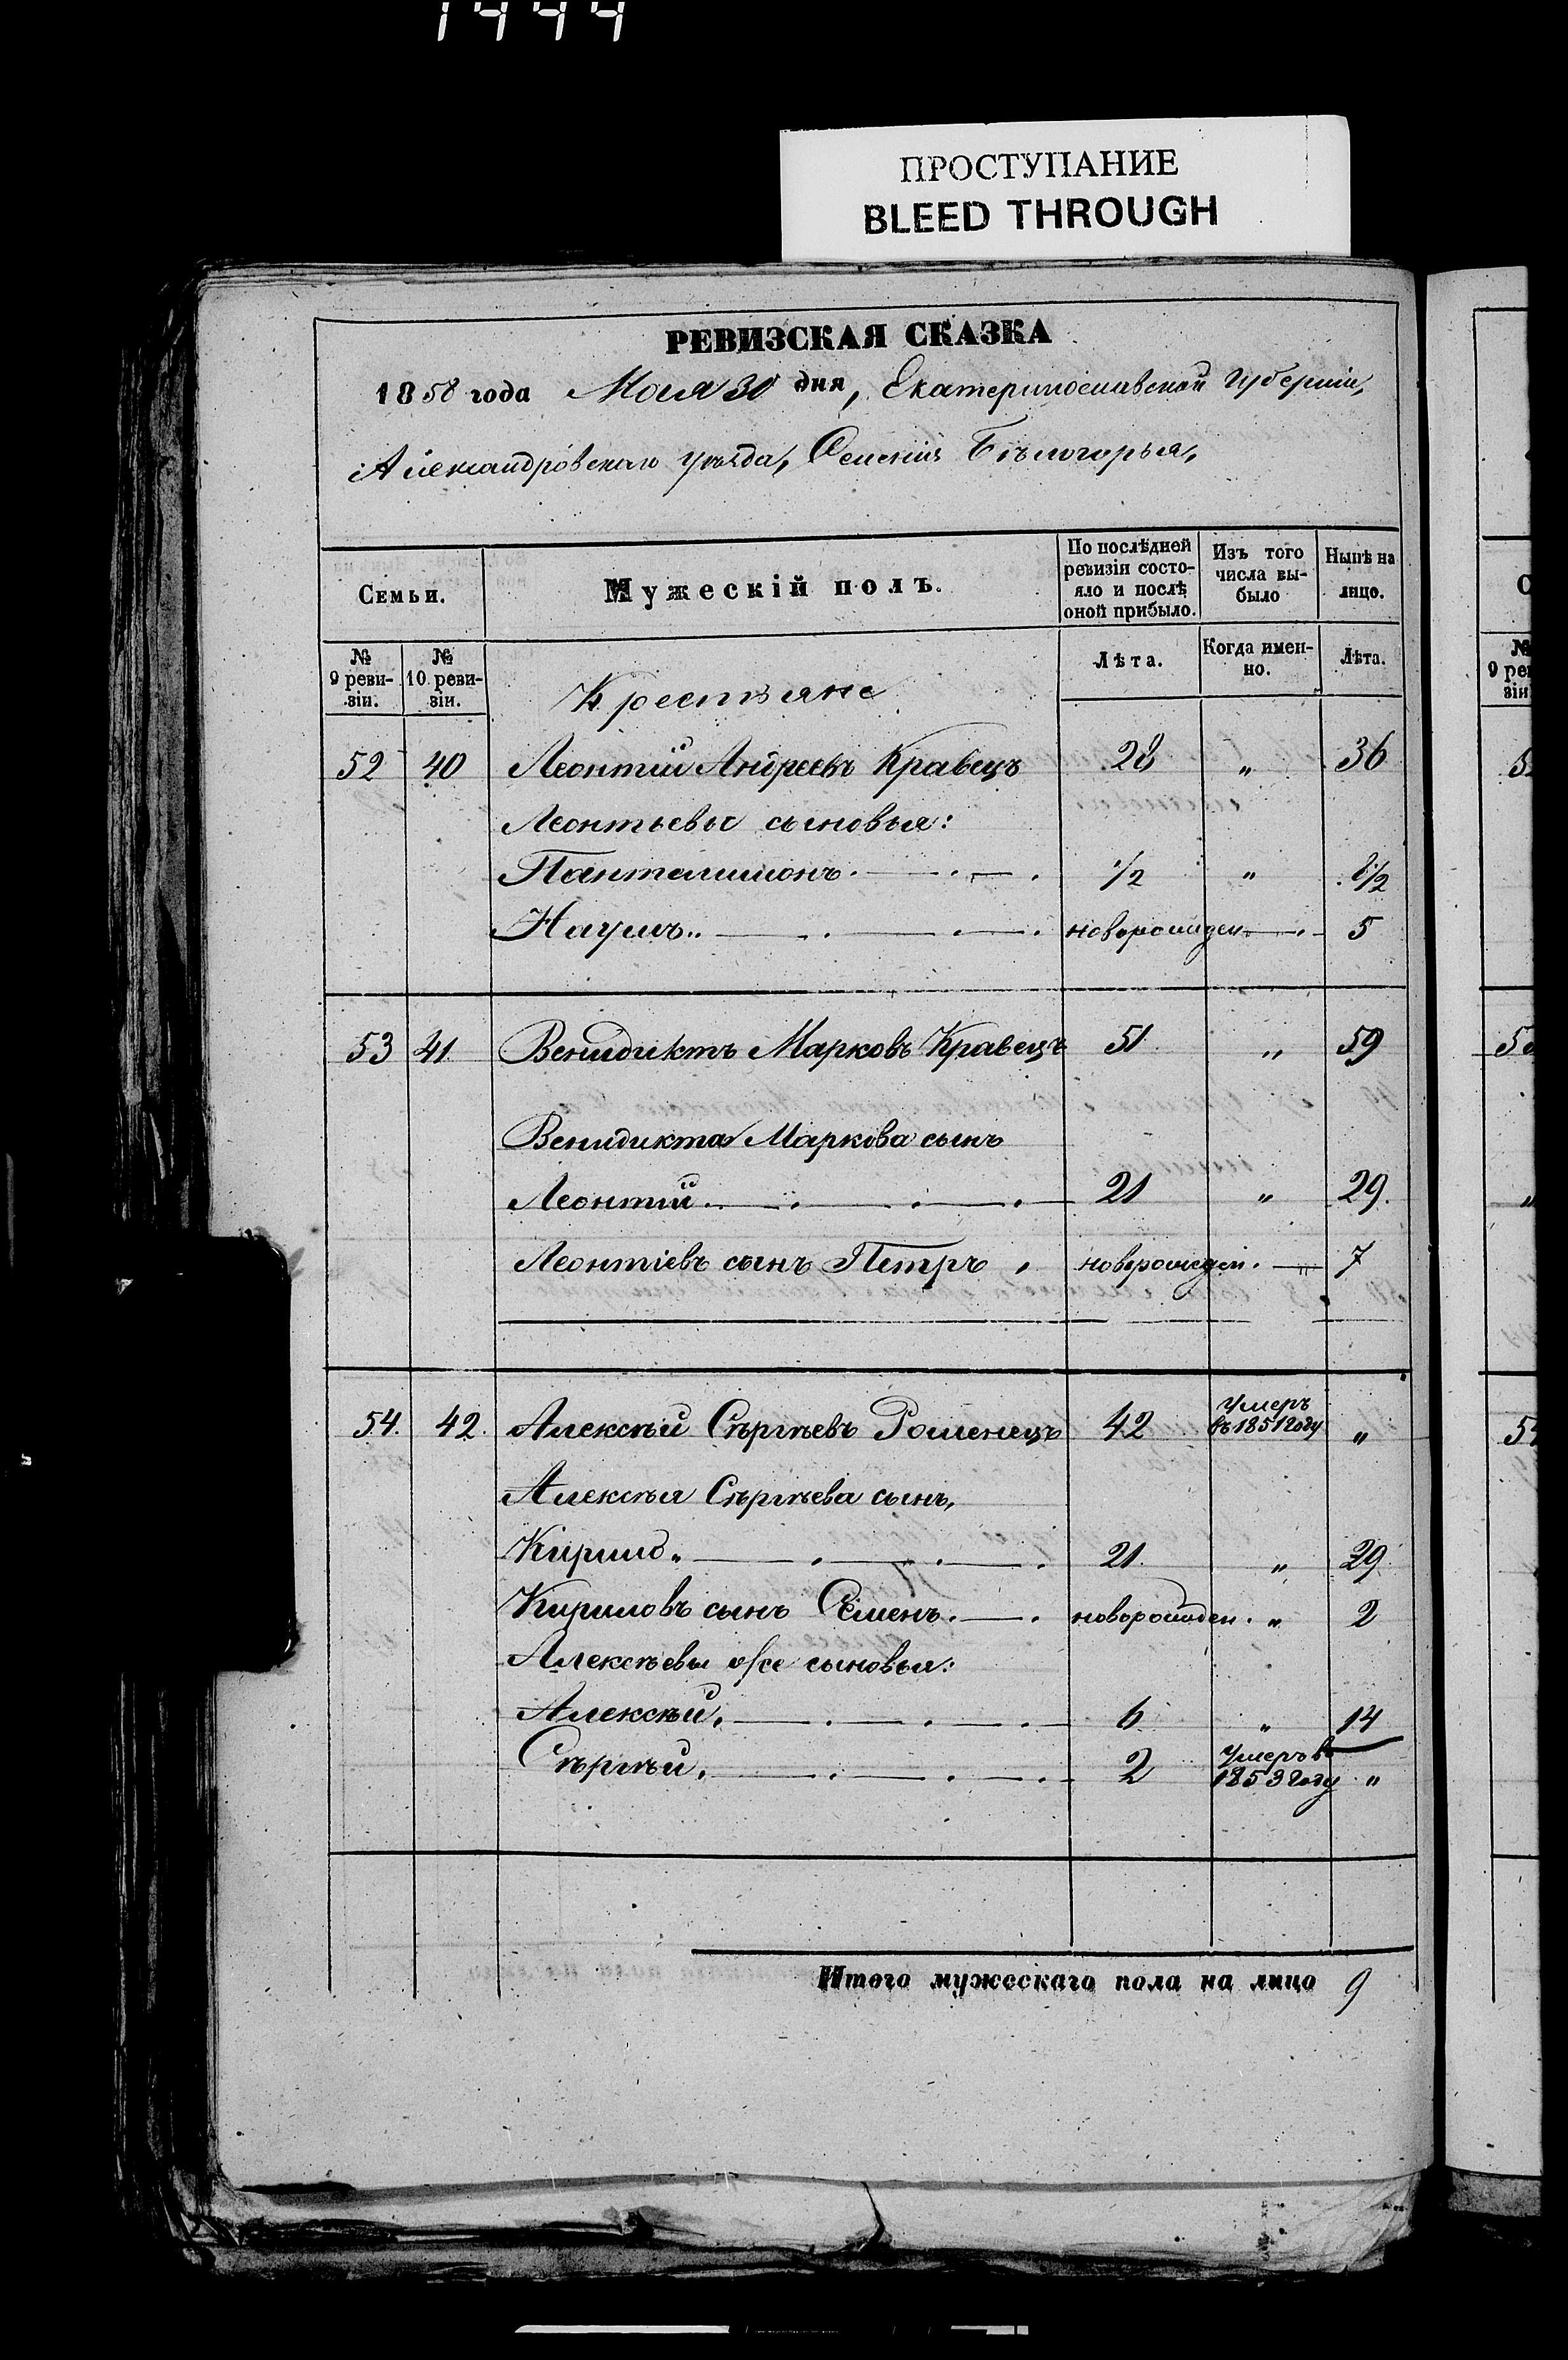 1444
ПРОСТУПАНИЕ
BLEED THROUGH
РЕВИЗСКАЯ СКАЗКА
1858 года Мая 30 дня, Екатеринославской губерніи,
Александровскаго уѣзда, Селенія Бѣлогорья,
Семьи.
Мужескій полъ.
По послѣдней ревизіи состояло и послѣ оной прибыло.
Изъ того числа выбыло
Нынѣ на лицо.
№ 9 ревизіи.
№ 10 ревизіи.
Крестьяне
Лѣта.
Когда именно.
Лѣта.
52 40 Леонтій Андреевъ Кравецъ 28 „ 36
Леонтьевы сыновья:
Панталимонъ 1/2 „ 8 1/2
Наумъ новорожден. 5
53 41 Венидиктъ Марковъ Кравецъ 51 „ 59
Венидикта Маркова сынъ
Леонтій 21 „ 29
Леонтіевъ сынъ Петръ новорожден. „ 7
54. 42. Алексѣй Сѣргѣевъ Роменецъ 42 Умеръ въ 1851 году „
Алексѣя Сѣргѣева сынъ,
Кирилъ 21 „ 29
Кириловъ сынъ Семенъ новорожден. „ 2
Алексѣевы же сыновья:
Алексѣй 6 „ 14
Сѣргѣй 2 Умеръ въ 1853 году „
Итого мужескаго пола на лицо 9